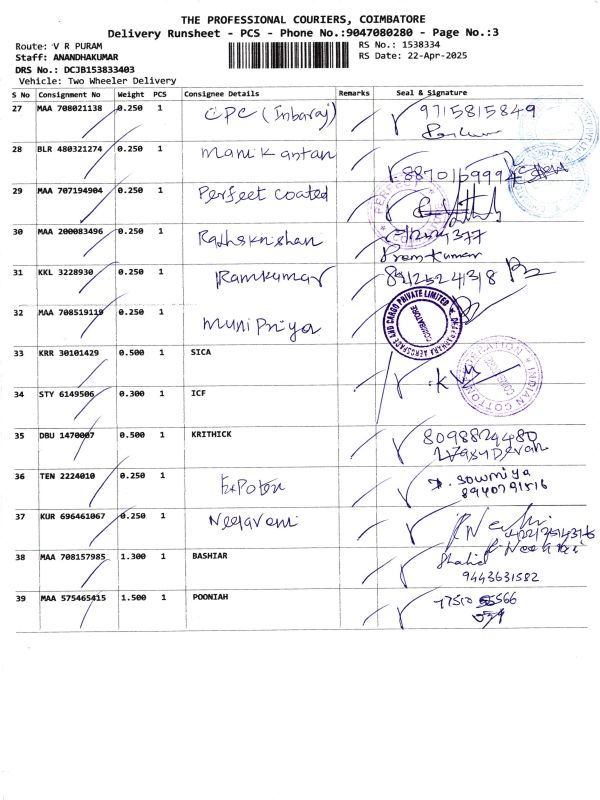 THE PROFESSIONAL COURIERS, COIMBATORE
Delivery Runsheet - PCS - Phone No.:9047080280 - Page No.:3
Route: V R PURAM
RS No.: 1538334
Staff: ANANDHAKUMAR
RS Date: 22-Apr-2025
DRS No.: DCJB153833403
Vehicle: Two Wheeler Delivery
S No Consignment No Weight PCS Consignee Details Remarks Seal & Signature
27 MAA 708021138 0.250 1 CPC (Inbaraj) 9715815849
28 BLR 480321274 0.250 1 Manikantan
29 MAA 707194904 0.250 1 Perfect Coated
30 MAA 200083496 0.250 1
Prem Kumar
31 KKL 3228930 0.250 1 Ramkumar
32 MAA 708519119 0.250 1 MuniPriya
AEROSPACE AND CARGO PRIVATE LIMITED
COIMBATORE
33 KRR 30101429 0.500 1 SICA
INDIAN COTTON
34 STY 6149506 0.300 1 ICF
35 DBU 1470007 0.500 1 KRITHICK 8098824480
36 TEN 2224010 0.250 1 D. Sowmiya
8940791516
37 KUR 696461067 0.250 1
38 MAA 708157985 1.300 1 BASHIAR Shahid
9443631582
39 MAA 575465415 1.500 1 POONIAH